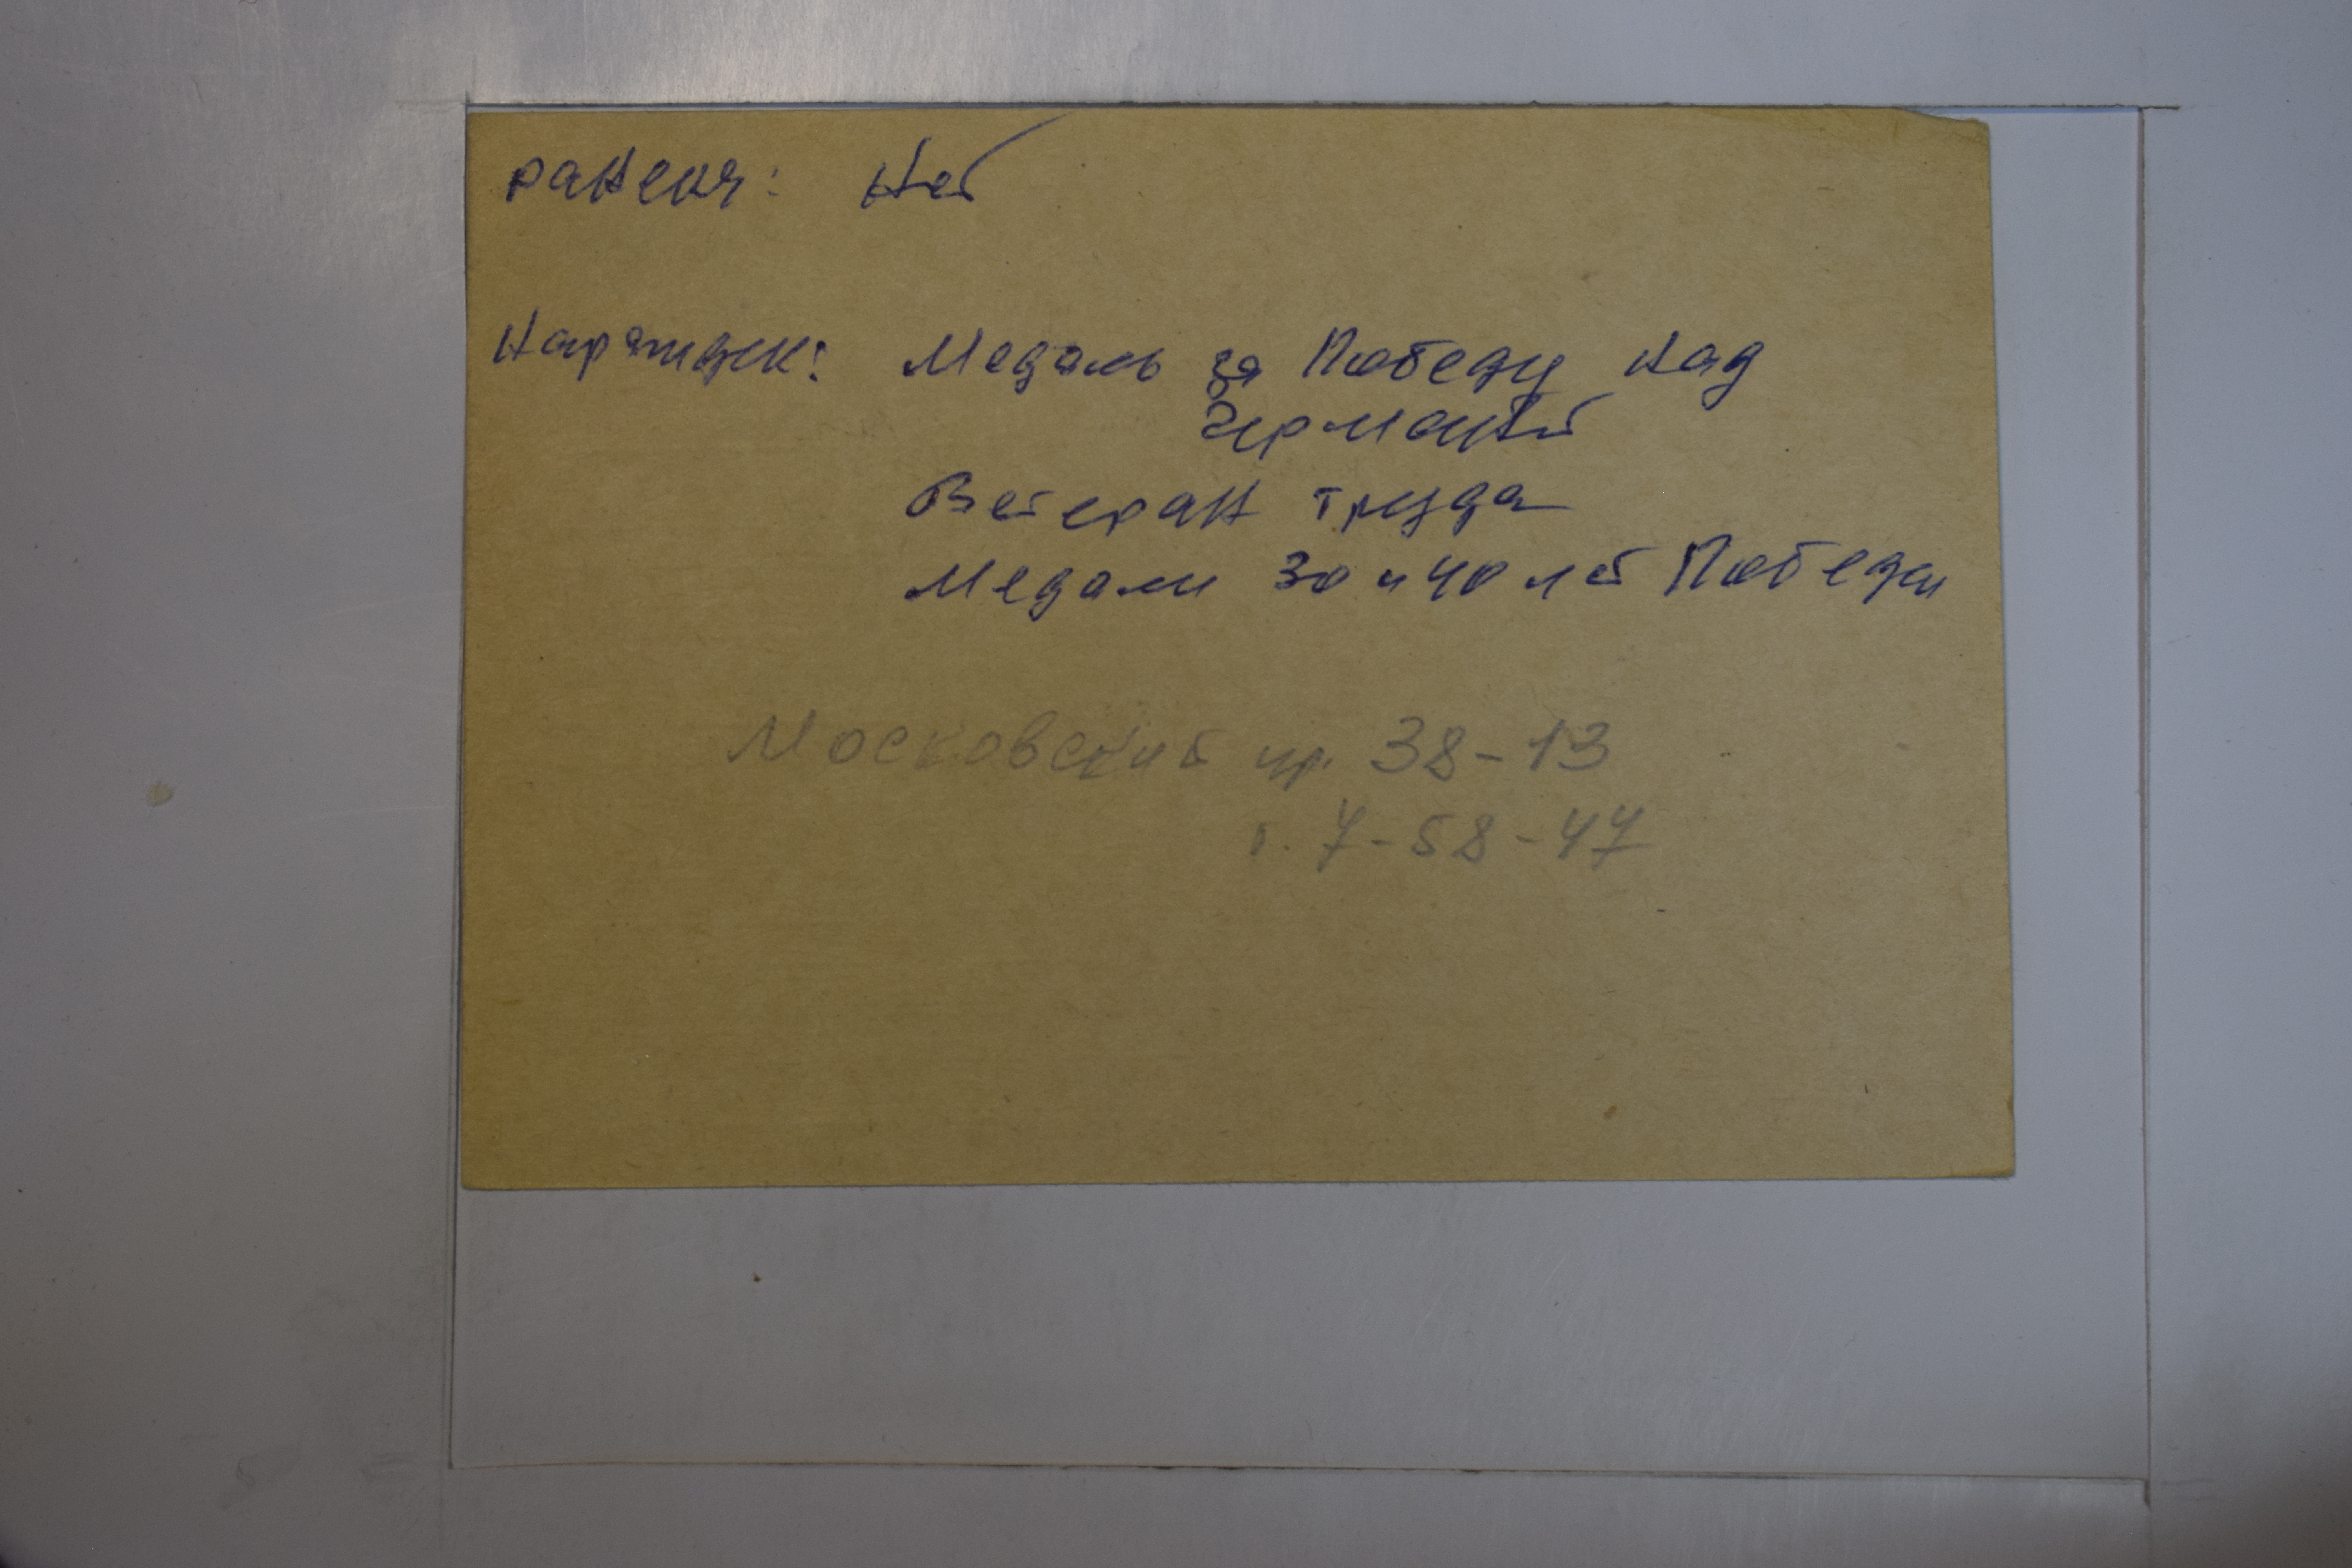 ранения: Нет
Награжден: Медаль за Победу над
Германией
Ветеран труда
Медали 30 и 40 лет Победы
Московский пр. 38-13
т. 7-58-47